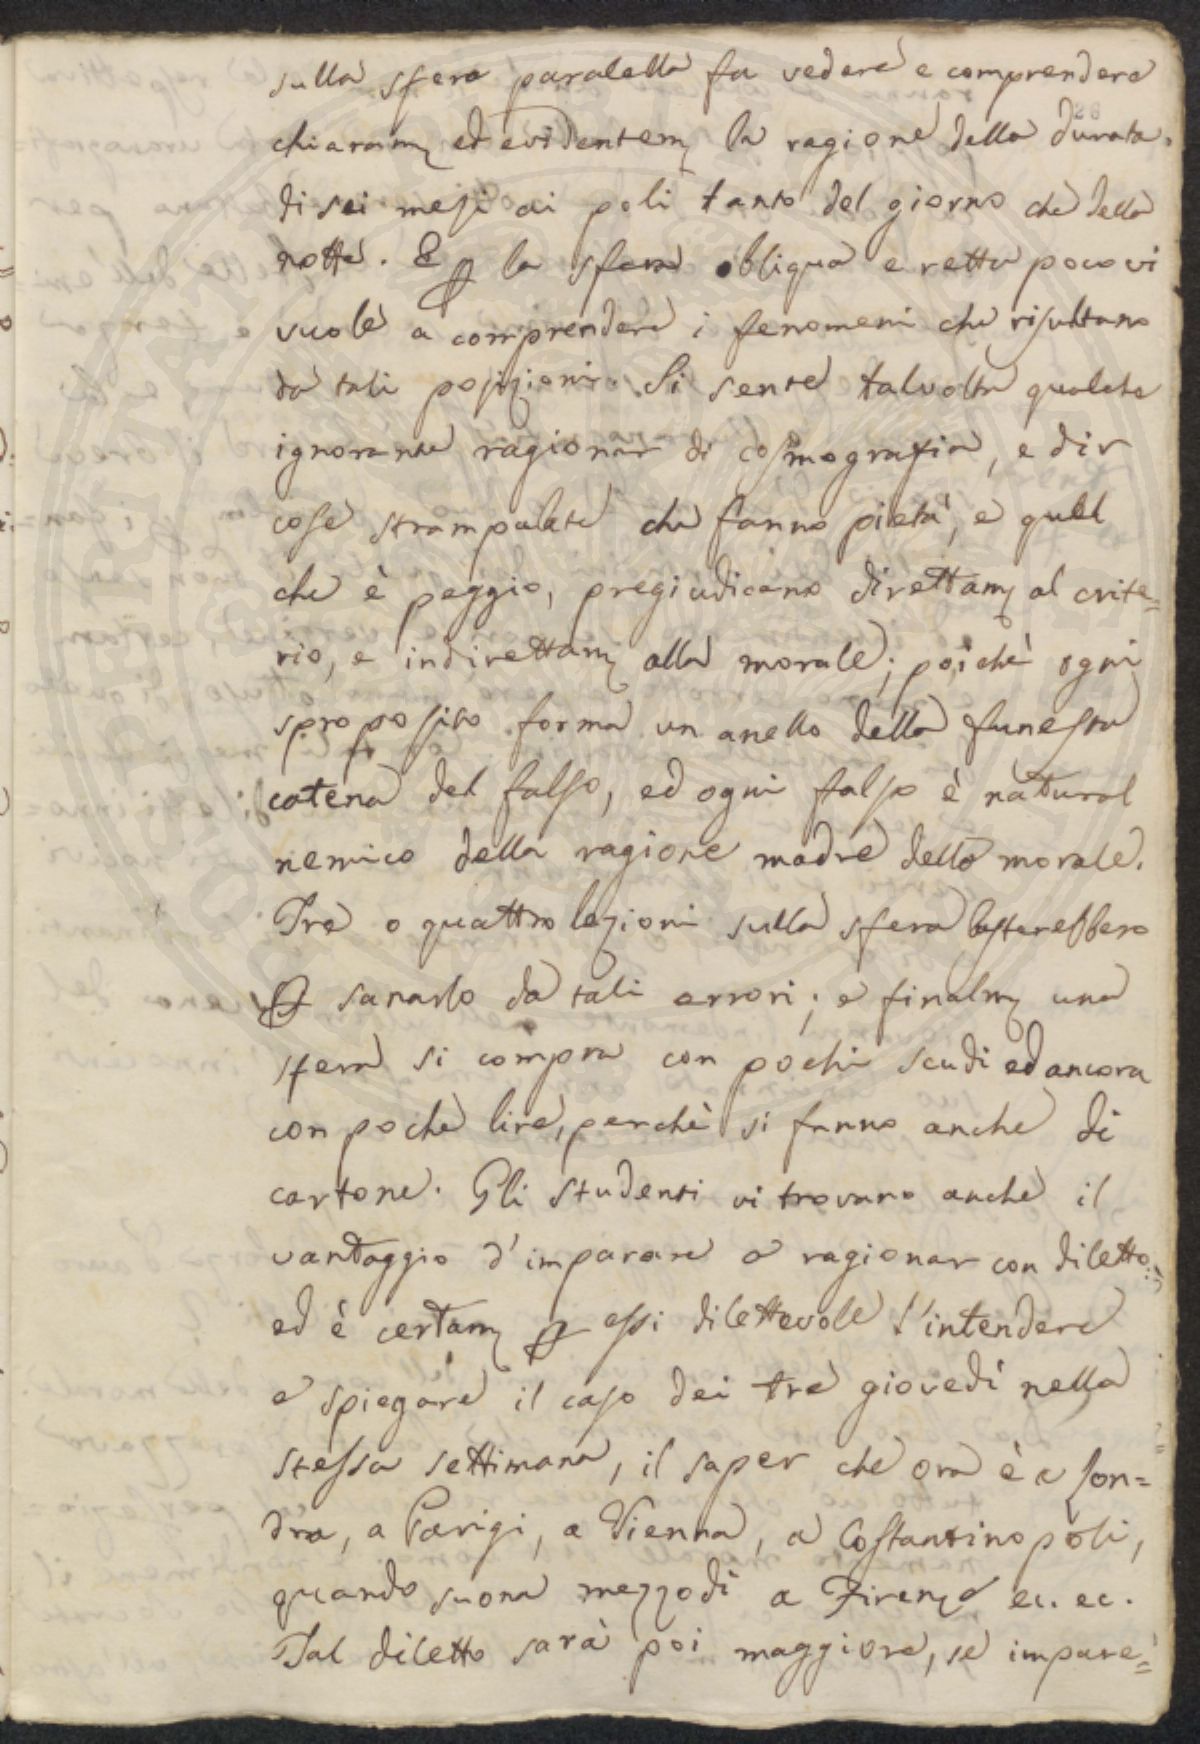 sulla sfera paralella fa vedere e comprendere
28
chiaram. ed evidentem. la ragione della durata
di sei mesi ai poli tanto del giorno che della
notte. E p la sfera obliqua e retta poco vi
vuole a comprendere i fenomeni che risultano
da tali posizioni. Si sente talvolta qualche
ignorante ragionar di cosmografia, e dir
cose strampalate che fanno pietà, e quel
che è peggio, pregiudicano direttam. al crite=
rio, e indirettam. alla morale; poichè ogni
sproposito forma un anello della funesta
catena del falso, ed ogni falso è natural
nemico della ragione madre della morale.
Tre o quattro lezioni sulla sfera basterebbero
p sanarlo da tali errori; e finalm. una
sfera si compra con pochi scudi ed ancora
con poche lire, perchè si fanno anche di
cartone. Gli studenti vi trovano anche il
vantaggio d'imparare a ragionar con diletto;
ed è certam. p essi dilettevole l'intendere
e spiegare il caso dei tre giovedì nella
stessa settimana, il saper che ora è a Lon=
dra, a Parigi, a Vienna, a Costantinopoli,
quando suona mezzodì a Firenze ec. ec.
Tal diletto sarà poi maggiore, se impare=